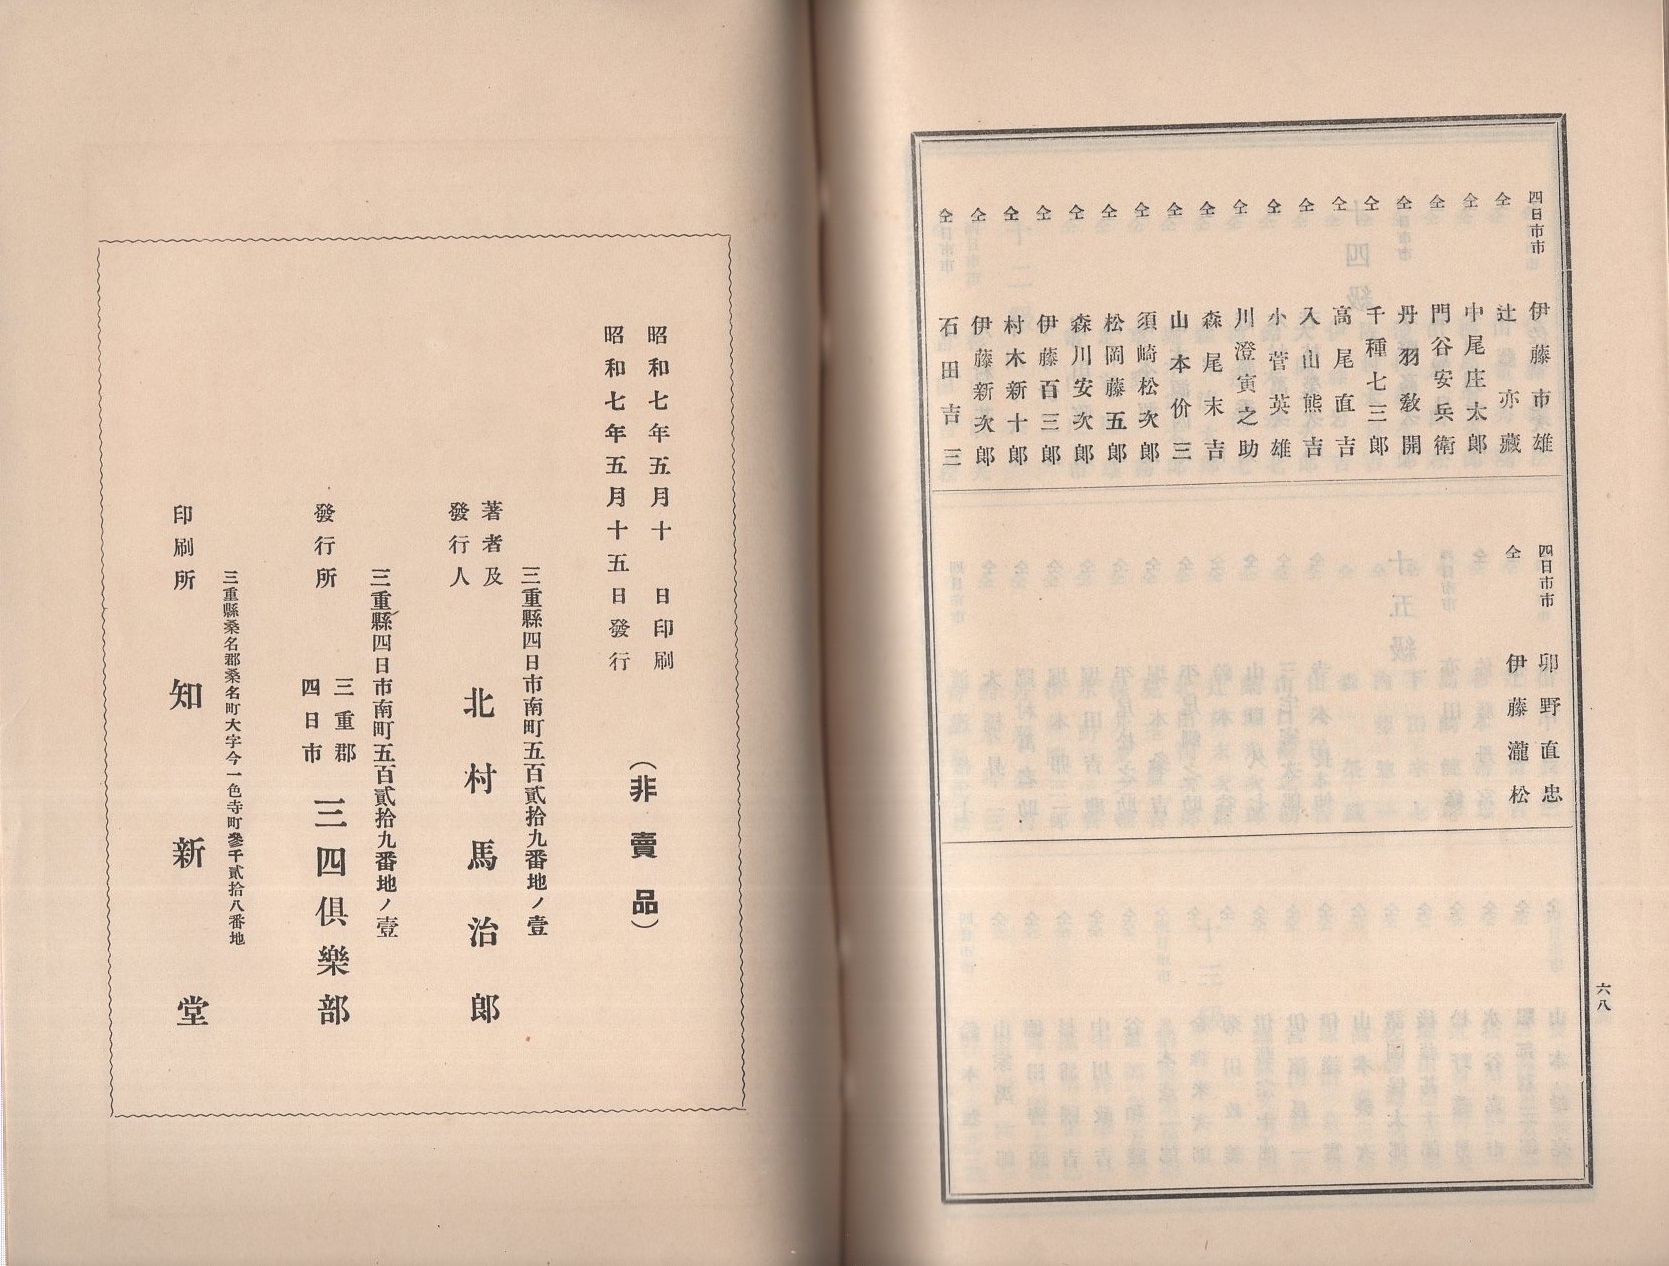 四日市市 伊藤市雄
仝 辻亦藏
仝 中尾庄太郎
仝 門谷安兵衛
仝 丹羽敎開
仝 千種七三郎
仝 高尾直吉
仝 入山熊吉
仝 小菅英雄
仝 川澄寅之助
仝 森尾末吉
仝 山本价三
仝 須崎松次郎
仝 松岡藤五郎
仝 森川安次郎
仝 伊藤百三郎
仝 村木新十郎
仝 伊藤新次郎
仝 石田吉三
四日市市 卯野直忠
仝 伊藤瀧松
六八
昭和七年五月十 日印刷
昭和七年五月十五日發行
(非賣品)
三重縣四日市南町五百貳拾九番地ノ壹
著者及
發行人
北村馬治郎
三重縣四日市南町五百貳拾九番地ノ壹
發行所
三重郡
四日市
三四倶樂部
三重縣桑名郡桑名町大字今一色寺町參千貳拾八番地
印刷所 知新堂